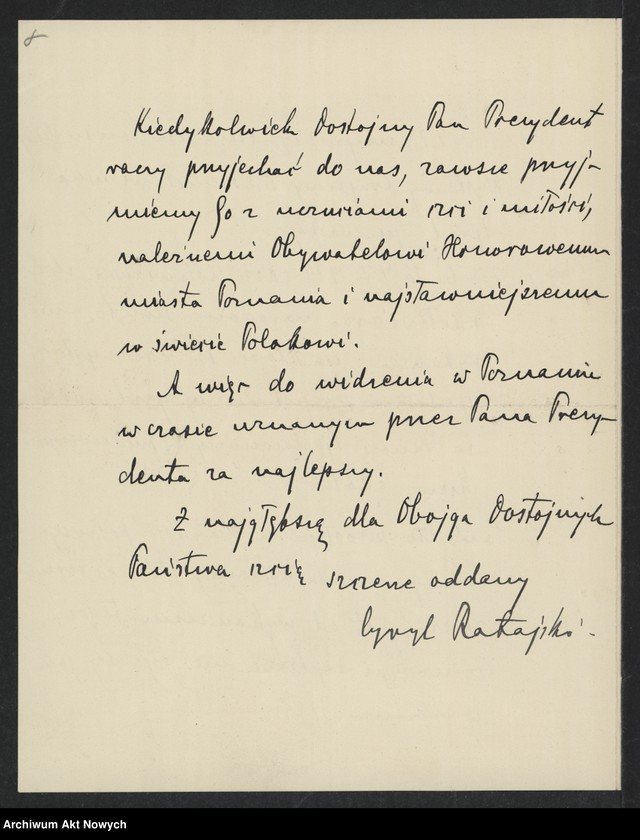 8
Kiedykolwiek Dostojny Pan Prezydent
raczy przyjechać do nas, zawsze przyj-
miemy Go z uczuciami czci i miłości,
należnemi Obywatelowi Honorowemu
miasta Poznania i najsławniejszemu
w świecie Polakowi.
A więc do widzenia w Poznaniu
w czasie uznanym przez Pana Prezy-
denta za najlepszy.
Z najgłębszą dla Obojga Dostojnych
Państwa czcią szczerze oddany
Cyryl Ratajski.
Archiwum Akt Nowych